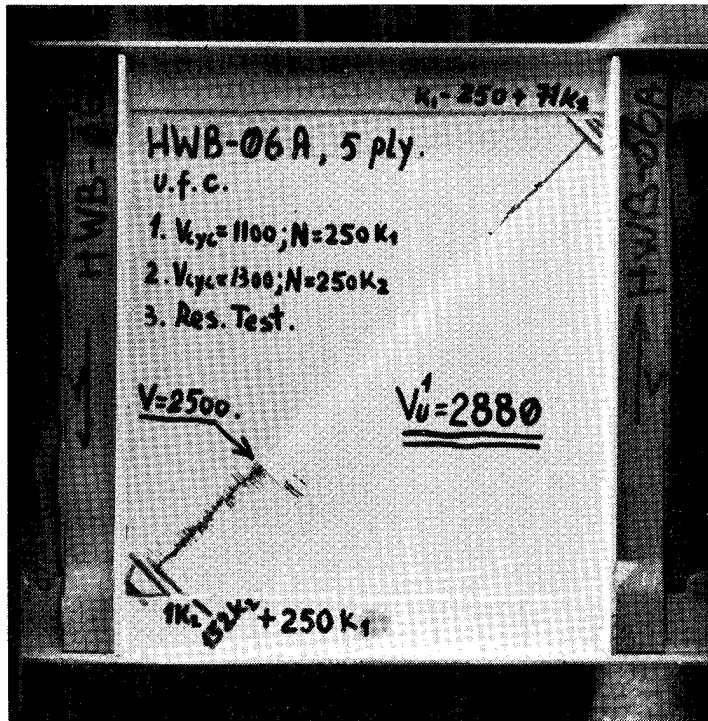 K₁-250+71K₂
HWB-06A, 5 ply.
u.f.c.
1. Vcyc=1100; N=250K₁
2. Vcyc=1300; N=250K₂
3. Res. Test.
V=2500.
Vu¹=2880
1K₂
152K₂+250K₁
HWB-
HWB-06A